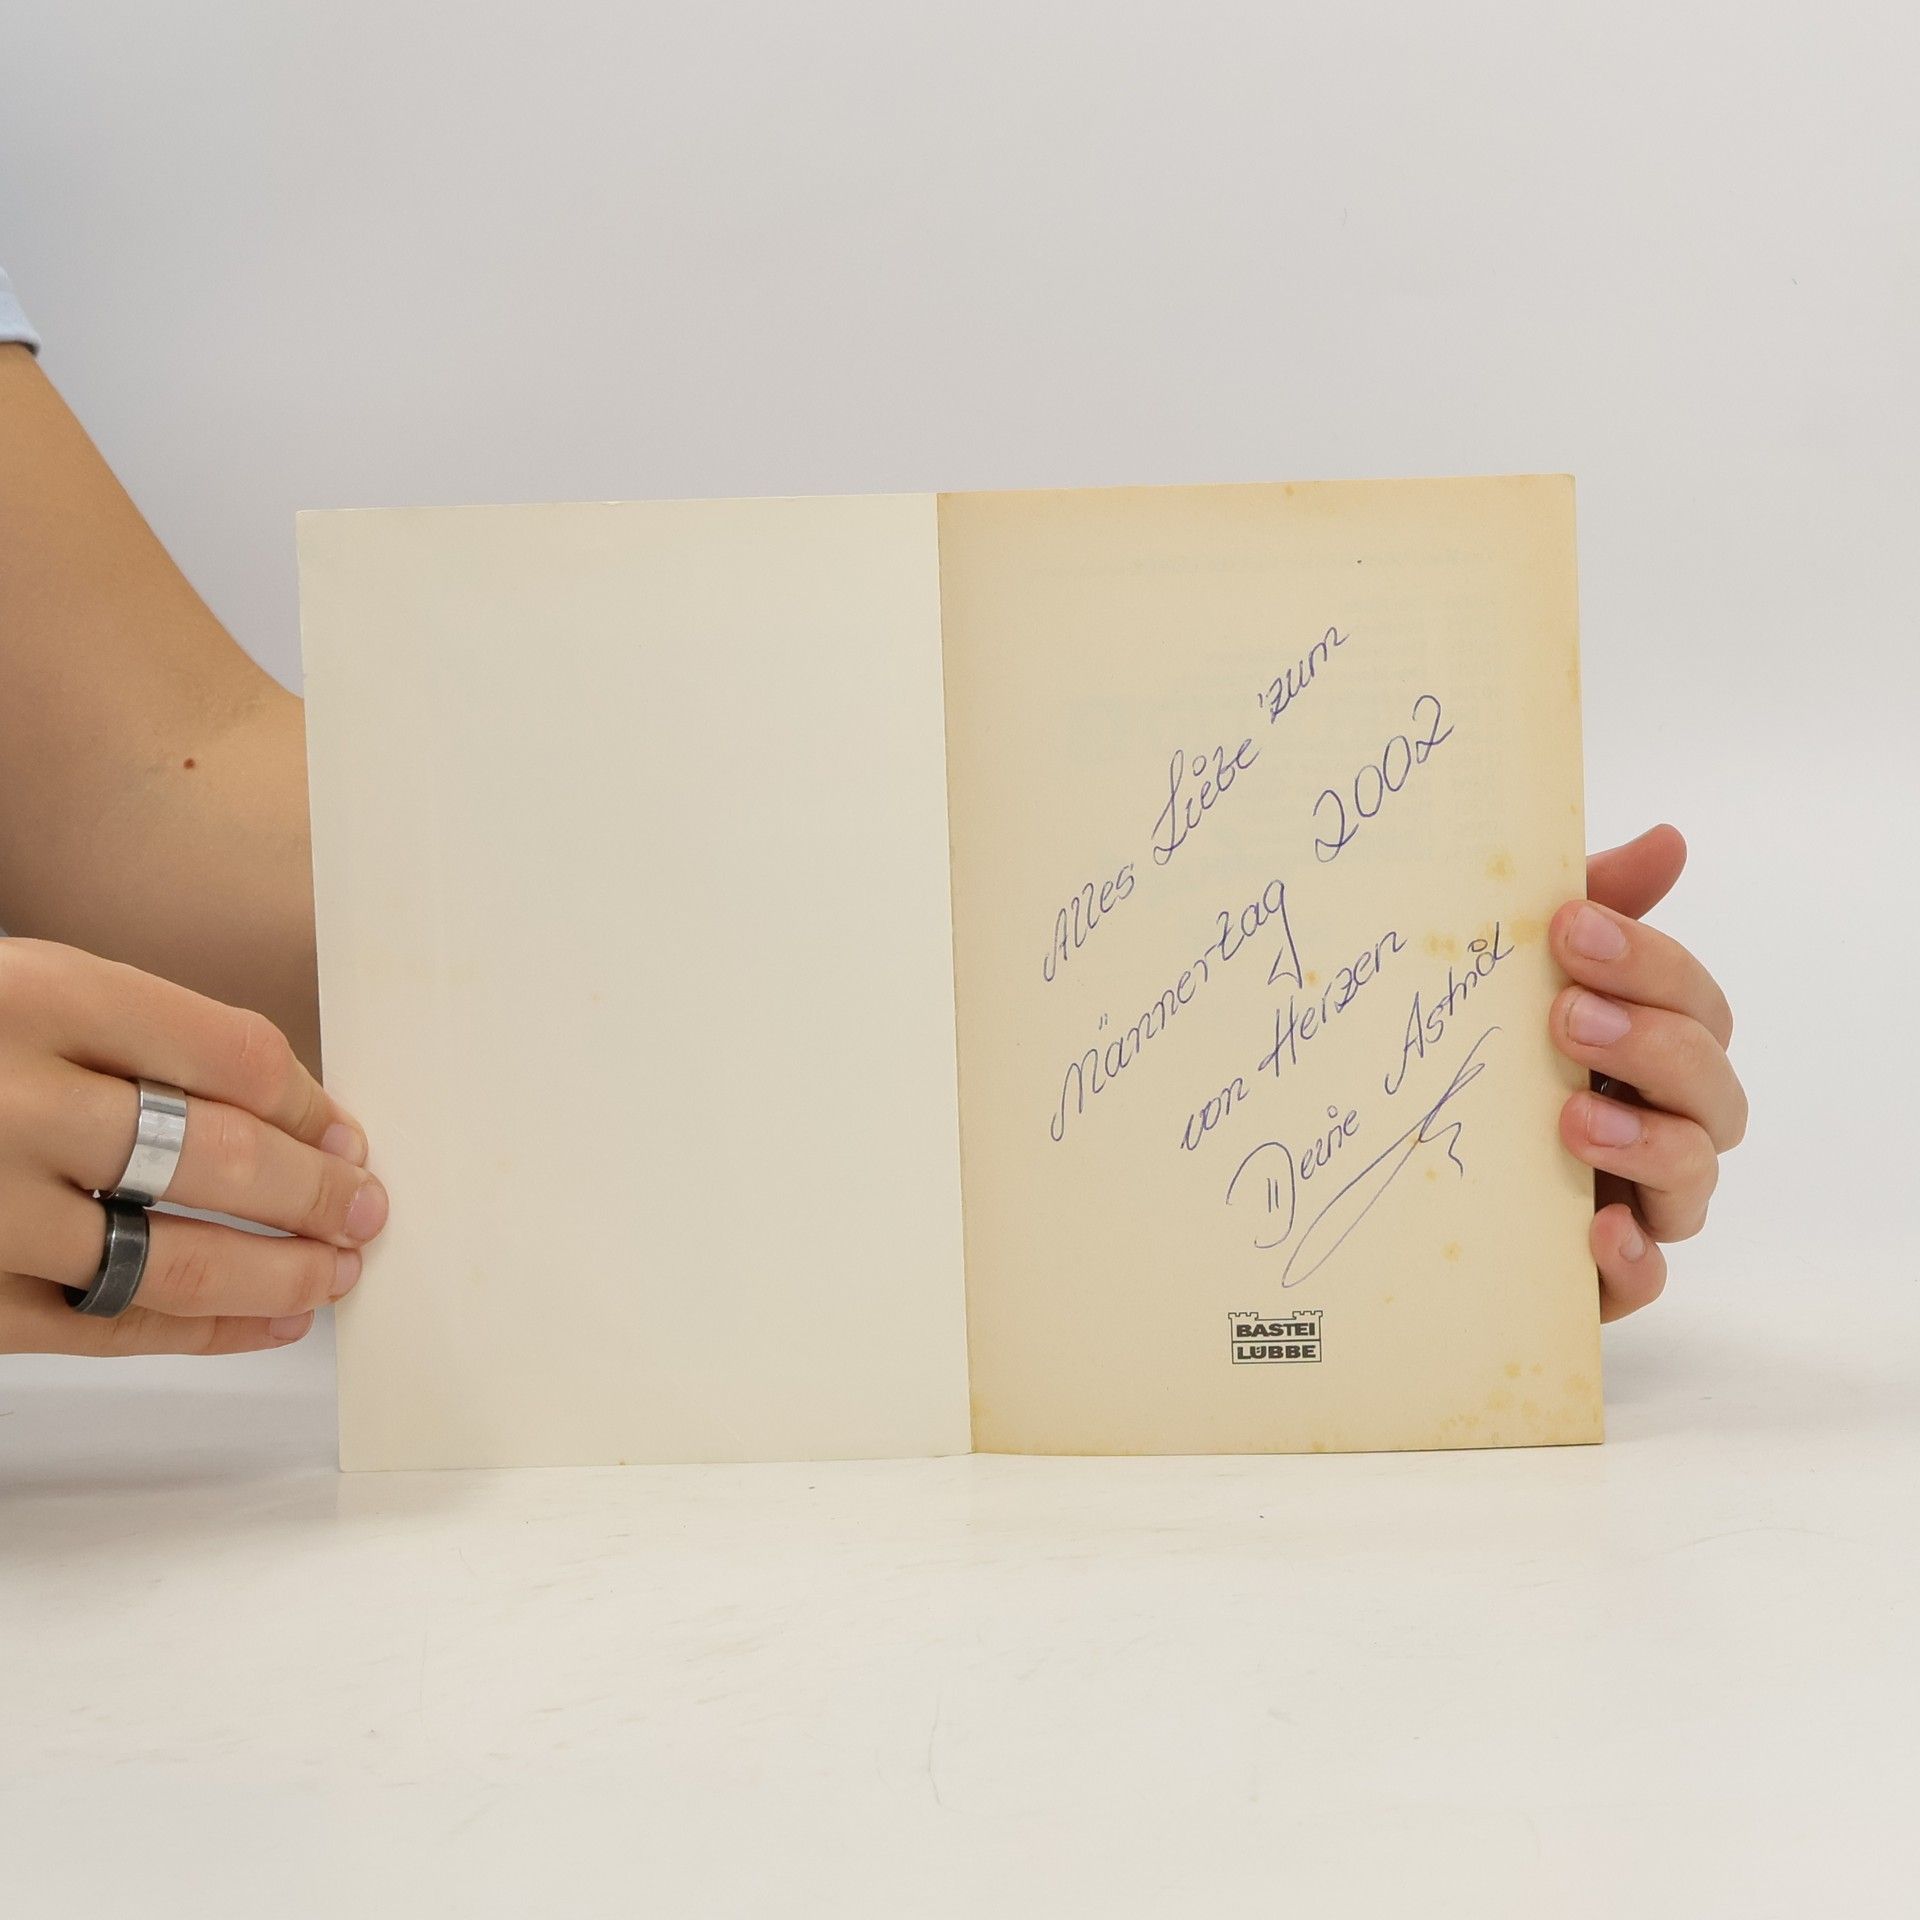 Alles Liebe zum
Männertag 2002
von Herzen
Deine Astrid
BASTEI
LÜBBE